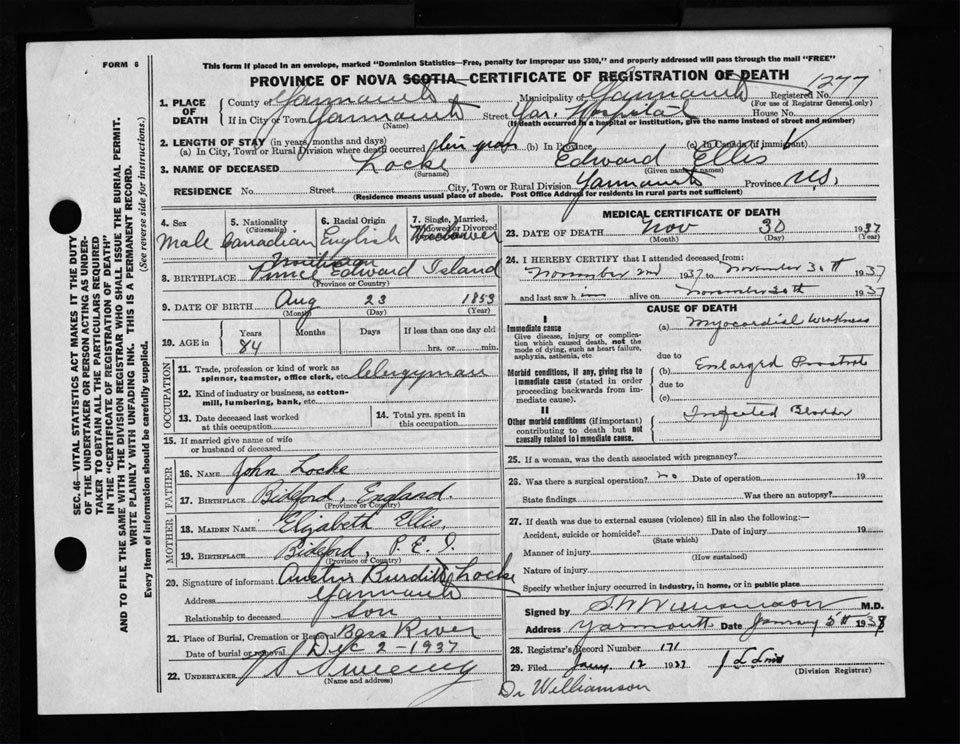 FORM 6
This form if placed in an envelope, marked "Dominion Statistics—Free, penalty for improper use $300," and properly addressed will pass through the mail "FREE"
PROVINCE OF NOVA SCOTIA—CERTIFICATE OF REGISTRATION OF DEATH
1277
1. PLACE OF DEATH
County of Yarmouth Municipality of Yarmouth Registered No.
(For use of Registrar General only)
If in City or Town Yarmouth Street Yar. Hospital House No.
(Name) (If death occurred in a hospital or institution, give the name instead of street and number)
2. LENGTH OF STAY (in years, months and days)
(a) In City, Town or Rural Division where death occurred ten years (b) In Province (c) In Canada (if immigrant)
3. NAME OF DECEASED Locke Edward Ellis
(Surname) (Given name or names)
RESIDENCE No. Street City, Town or Rural Division Yarmouth Province N.S.
(Residence means usual place of abode. Post Office Address for residents in rural parts not sufficient)
4. Sex Male
5. Nationality (Citizenship) Canadian
6. Racial Origin English
7. Single, Married, Widowed or Divorced Widower
8. BIRTHPLACE Prince Edward Island
(Province or Country)
9. DATE OF BIRTH Aug 23 1853
(Month) (Day) (Year)
10. AGE in Years Months Days If less than one day old
84 hrs. or min.
OCCUPATION
11. Trade, profession or kind of work as spinner, teamster, office clerk, etc. Clergyman
12. Kind of industry or business, as cotton-mill, lumbering, bank, etc.
13. Date deceased last worked at this occupation
14. Total yrs. spent in this occupation
15. If married give name of wife or husband of deceased
FATHER
16. NAME John Locke
17. BIRTHPLACE Bideford, England.
(Province or Country)
MOTHER
18. MAIDEN NAME Elizabeth Ellis.
19. BIRTHPLACE Bideford, P.E.I.
(Province or Country)
20. Signature of informant Austin Burditt Locke
Address Yarmouth
Relationship to deceased Son
21. Place of Burial, Cremation or Removal Bass River
Date of burial or removal Dec 2-1937
22. UNDERTAKER Sweeny
(Name and address)
MEDICAL CERTIFICATE OF DEATH
23. DATE OF DEATH Nov 30 1937
(Month) (Day) (Year)
24. I HEREBY CERTIFY that I attended deceased from:
November 2nd 1937 to November 30th 1937
and last saw him alive on November 30th 1937
CAUSE OF DEATH
I
Immediate cause
Give disease, injury or complication which caused death, not the mode of dying, such as heart failure, asphyxia, asthenia, etc.
(a) Myocardial Weakness
due to
Morbid conditions, if any, giving rise to immediate cause (stated in order proceeding backwards from immediate cause).
(b) Enlarged Prostate
due to
(c)
II
Other morbid conditions (if important) contributing to death but not causally related to immediate cause.
Infected Bladder
25. If a woman, was the death associated with pregnancy?
26. Was there a surgical operation? no Date of operation 19
State findings Was there an autopsy?
27. If death was due to external causes (violence) fill in also the following:—
Accident, suicide or homicide? Date of injury 19
(State which)
Manner of injury
(How sustained)
Nature of injury
Specify whether injury occurred in industry, in home, or in public place
Signed by S. W. Williamson M.D.
Address Yarmouth Date January 5th 1938
28. Registrar's Record Number 171
29. Filed Jany 12 1937
(Division Registrar)
Dr Williamson
SEC. 46—VITAL STATISTICS ACT MAKES IT THE DUTY OF THE UNDERTAKER OR PERSON ACTING AS UNDERTAKER TO OBTAIN ALL THE PARTICULARS REQUIRED IN THE "CERTIFICATE OF REGISTRATION OF DEATH" AND TO FILE THE SAME WITH THE DIVISION REGISTRAR WHO SHALL ISSUE THE BURIAL PERMIT.
WRITE PLAINLY WITH UNFADING INK. THIS IS A PERMANENT RECORD.
Every item of information should be carefully supplied. (See reverse side for instructions.)